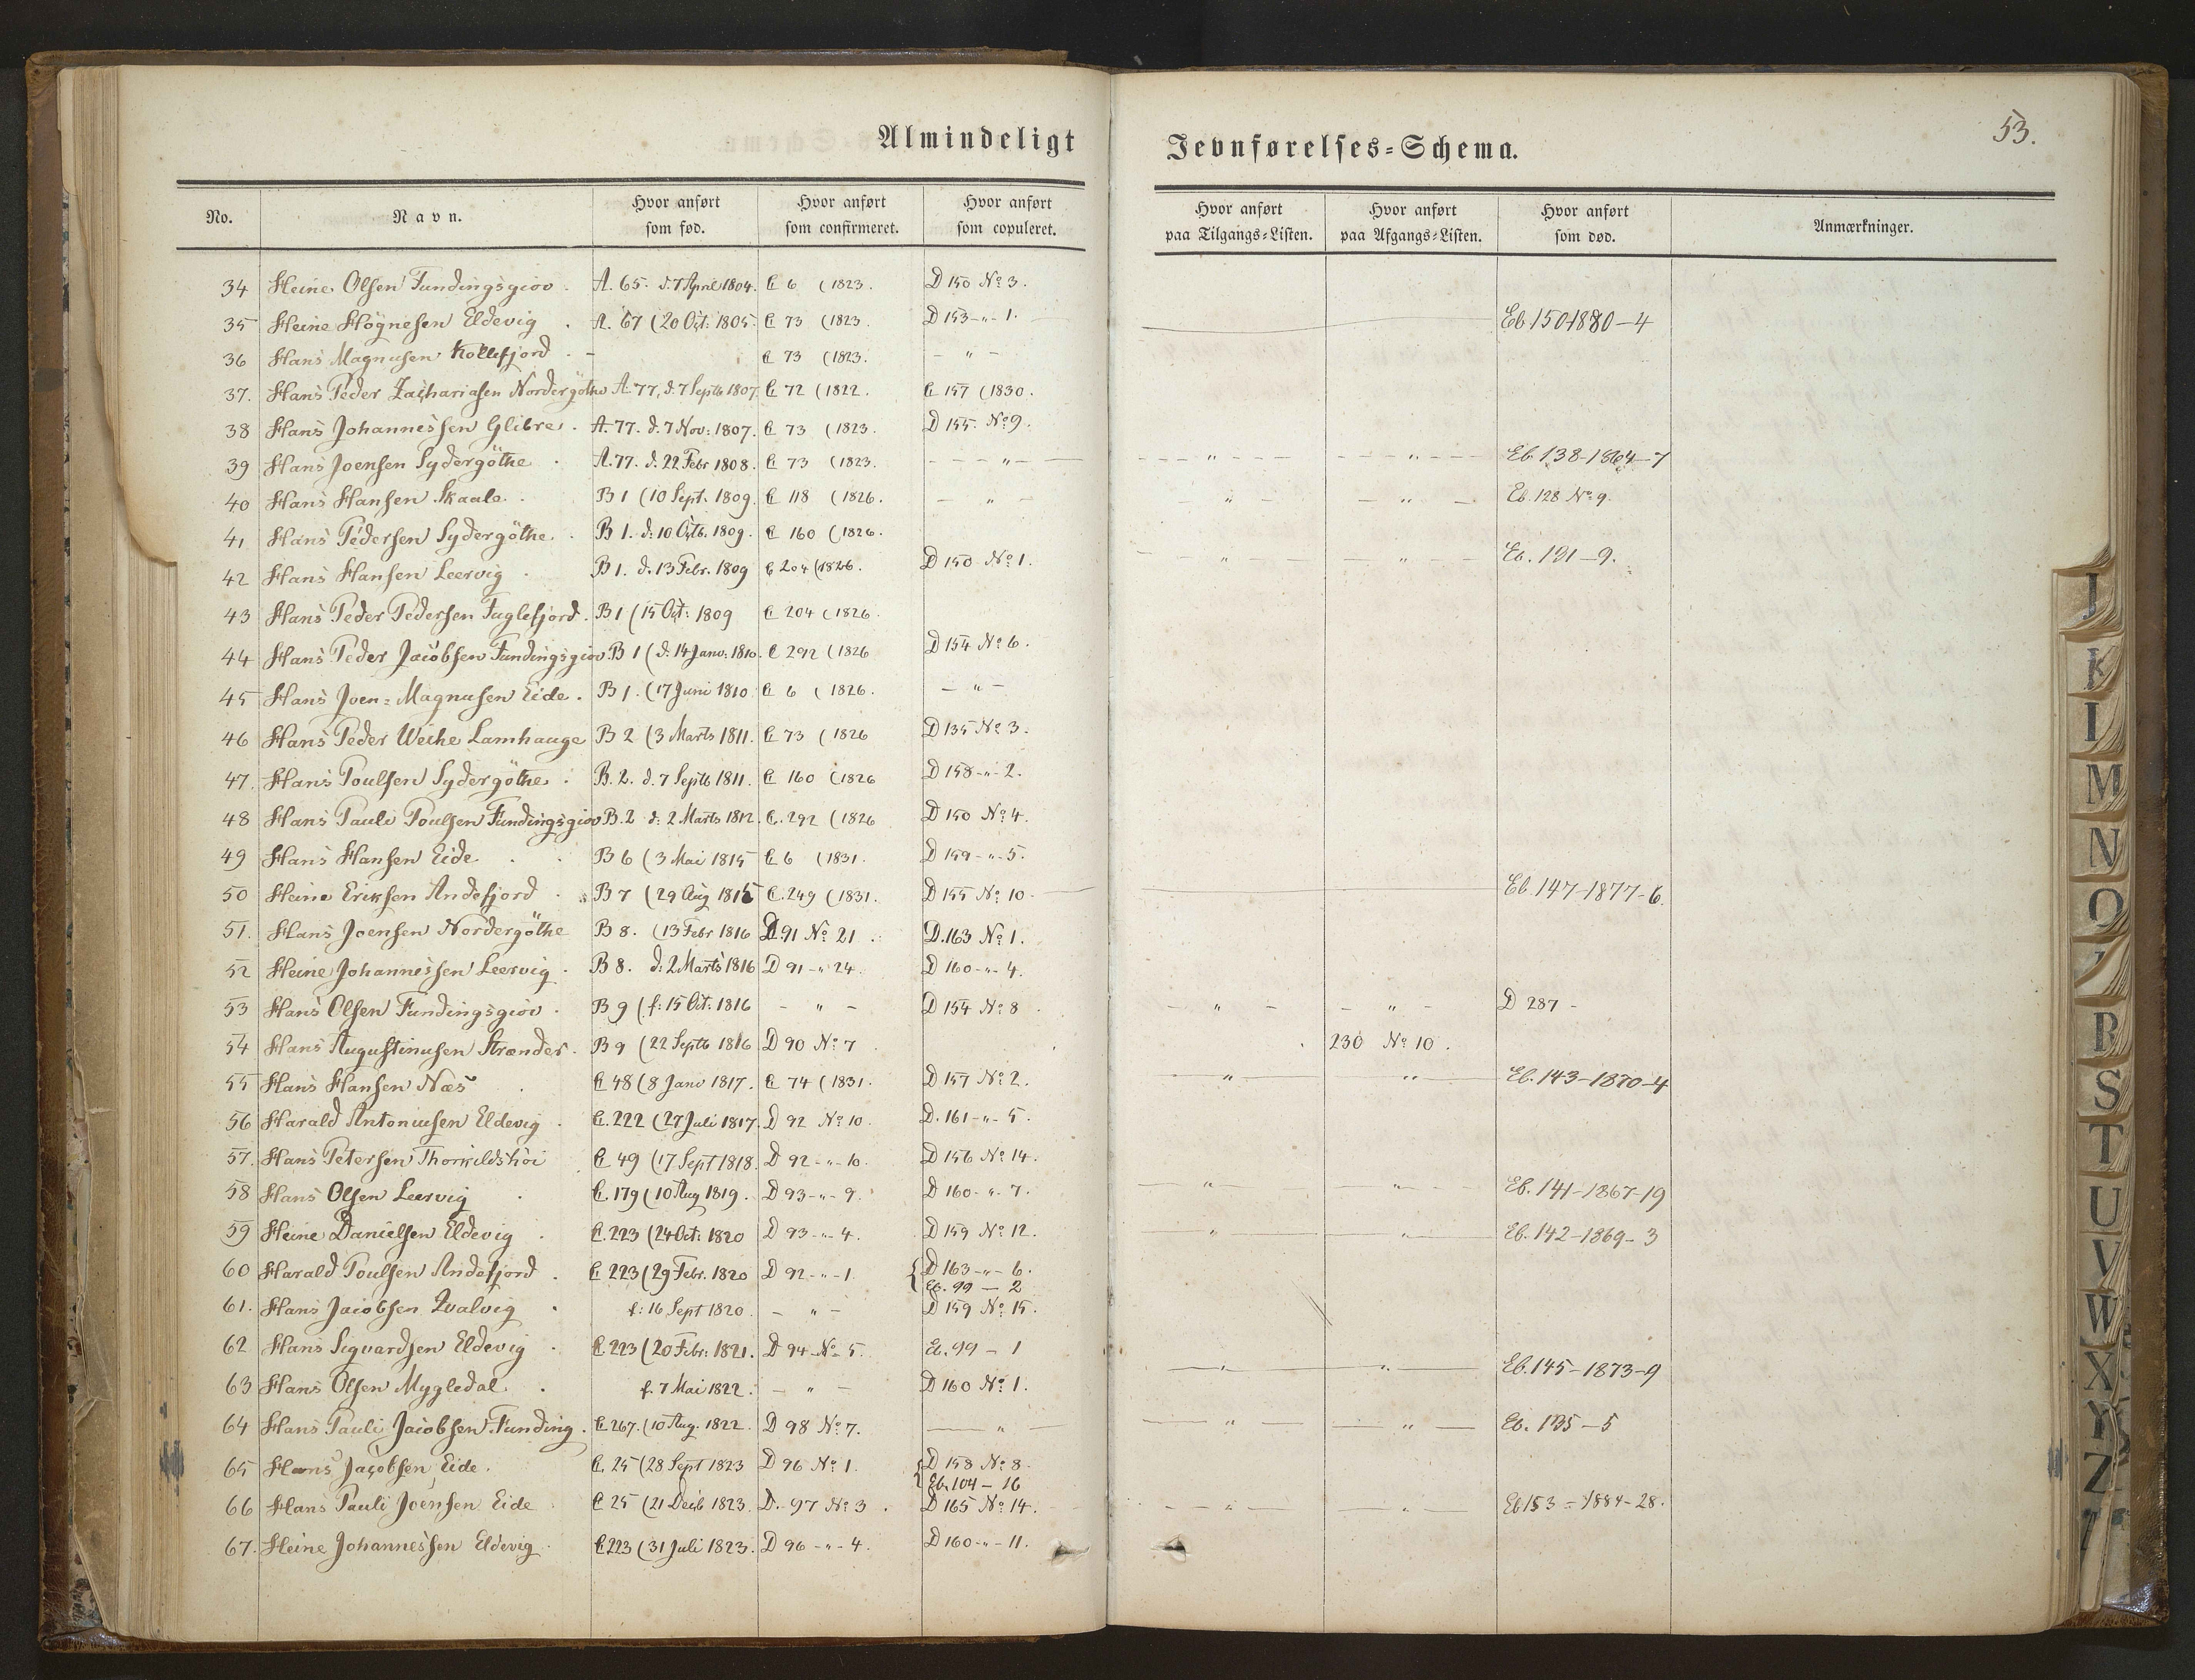 Almindeligt Jevnførelses=Schema.
53.
No. Navn. Hvor anført som fød. Hvor anført som confirmeret. Hvor anført som copuleret. Hvor anført paa Tilgangs=Listen. Hvor anført paa Afgangs=Listen. Hvor anført som død. Anmærkninger.
34 Heine Olsen Fundingsgiov. A. 65. d. 7 April 1804. C 6 (1823. D 150 No 3.
35 Heine Høgnesen Eldevig. A. 67 (20 Oct: 1805. C 73 (1823. D 153 -"- 1. Eb. 150 1880-4
36 Hans Magnusen Kollefjord. - C 73 (1823. - " -
37. Hans Peder Zachariasen Nordergöthe A. 77, d. 7 Septb 1807. C 72 (1822. C 157 (1830.
38 Hans Johannessen Glibre. A. 77. d. 7 Nov: 1807. C 73 (1823. D 155. No 9.
39 Hans Joensen Sydergöthe. A. 77. d. 22 Febr 1808. C 73 (1823. - " - - " - - " - Eb. 138-1864-7
40 Hans Hansen Skaale. B 1 (10 Sept. 1809. C 118 (1826. - " - " - - " - Eb. 128 No 9.
41 Hans Pedersen Sydergöthe. B 1. d: 10 Octb. 1809. C 160 (1826. - " - - " - Eb. 131-9.
42 Hans Hansen Leervig. B 1. d. 13 Febr. 1809 C 204 (1826. D 150 No 1.
43 Hans Peder Pedersen Fuglefjord. B 1 (15 Oct: 1809 C 204 (1826.
44 Hans Peder Jacobsen Fundingsgiov. B 1 (d: 14 Janv: 1810. C 292 (1826 D 154 No 6.
45 Hans Joen=Magnusen Eide. B 1. (17 Juni 1810. C 6 (1826. - " -
46 Hans Peder Weihe Lamhauge B 2 (3 Marts 1811. C 73 (1826 D 135 No 3.
47. Hans Poulsen Sydergöthe. B. 2. d. 7 Septb 1811. C 160 (1826 D 158 -"- 2.
48 Hans Pauli Poulsen Fundingsgiov B. 2 d: 2 Marts 1812. C. 292 (1826 D 150 No 4.
49 Hans Hansen Eide. B 6 (3 Mai 1815 C 6 (1831. D 159 -"- 5.
50 Heine Eriksen Andefjord. B 7 (29 Aug 1815 C. 249 (1831. D 155 No 10. Eb. 147-1877-6.
51. Hans Joensen Nordergöthe B 8. (13 Febr 1816 D. 91 No 21. D. 163 No 1.
52 Heine Johannessen Leervig. B 8. d: 2 Marts 1816 D 91 -"- 24. D 160 -"- 4.
53 Hans Olsen Fundingsgiov. B 9 (f: 15 Oct: 1816 - " - D 154 No 8 - " - - " - D 287 -
54 Hans Augustinusen Strænder. B 9 (22 Septb 1816 D 90 No 7 230 No 10.
55 Hans Hansen Næs. C 48 (8 Janv 1817. C 74 (1831. D 157 No 2. " " Eb. 143-1870-4
56 Harald Antoniusen Eldevig. C. 222 (27 Juli 1817. D 92 No 10. D. 161 -"- 5.
57. Hans Petersen Thorkildshöi C 49 (17 Sept 1818. D 92 -"- 10. D 156 No 14.
58 Hans Olsen Leervig. C. 179 (10 Aug 1819. D 93 -"- 9. D 160 -"- 7. - " - - " - Eb. 141-1867-19
59 Heine Danielsen Eldevig. C. 223 (24 Oct: 1820 D 93 -"- 4. D 159 No 12. - " - - " - Eb. 142-1869-3
60 Harald Poulsen Andefjord. C 223 (29 Febr. 1820 D 92 -"- 1. { D 163 -"- 6.
Eb. 99 - 2
61. Hans Jacobsen Qvalvig. f: 16 Sept 1820. - " - D 159 No 15.
62 Hans Sigvardsen Eldevig. C. 223 (20 Febr: 1821. D 94 -No- 5. Eb. 99 - 1
63 Hans Olsen Mygledal. f. 7 Mai 1822. - " - D 160 No 1. - " - - " - Eb. 145-1873-9
64 Hans Pauli Jacobsen Funding. C 267. (10 Aug. 1822. D 98 No 7. - " - - " - - " - Eb. 135-5
65 Hans Jacobsen Eide. C. 25 (28 Sept 1823 D 96 No 1. { D 158 No 8.
Eb. 104 - 16
66 Hans Pauli Joensen Eide C 25 (21 Decb 1823. D. 97 No 3. D 165 No 14. - " - - " - Eb 153 = 1884-28.
67. Heine Johannessen Eldevig. C 223 (31 Juli 1823. D 96 -"- 4. D 160 -"- 11.
J
K
L
M
N
O
P
R
S
T
U
V
W
X
Y
Z